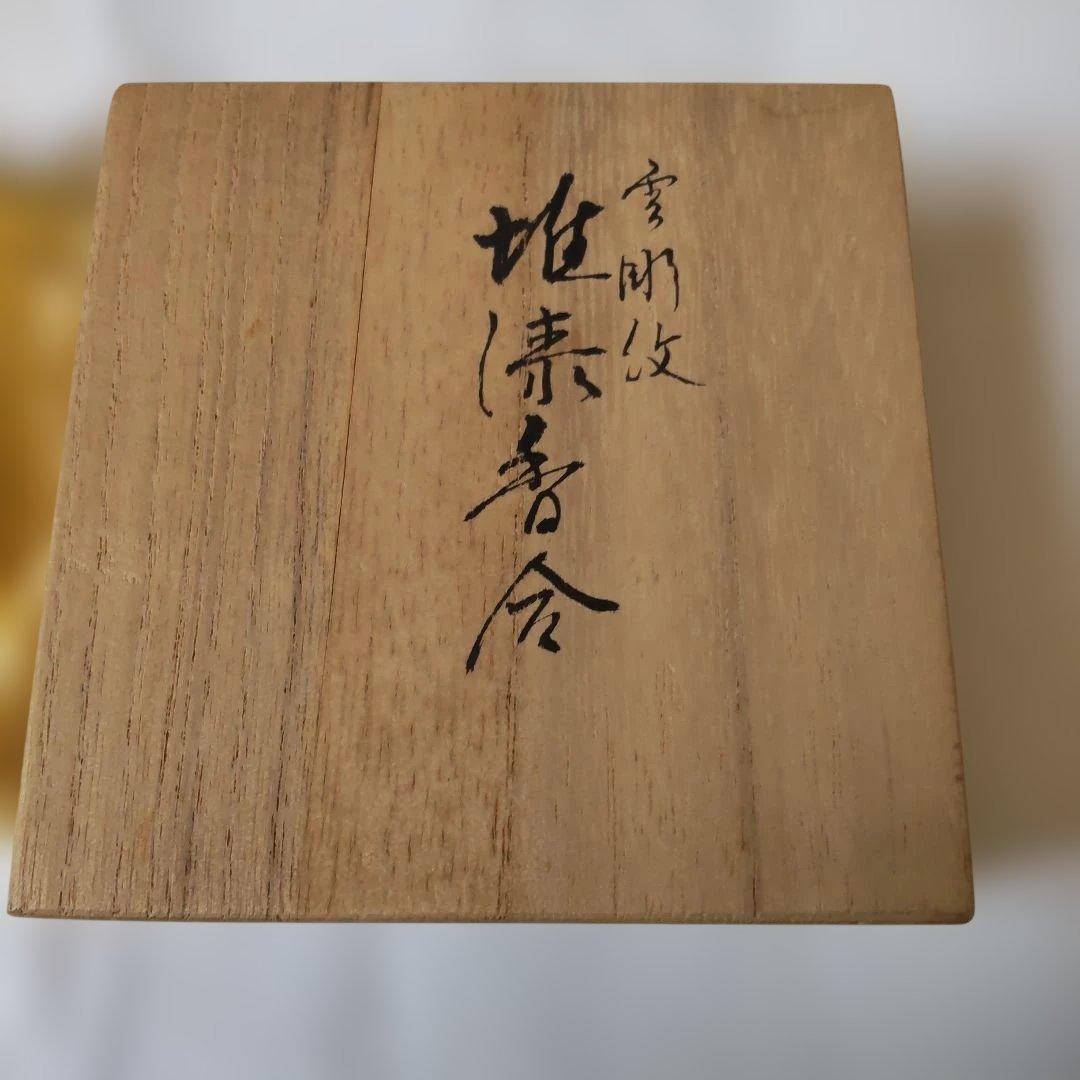 雲彫紋
堆漆香合